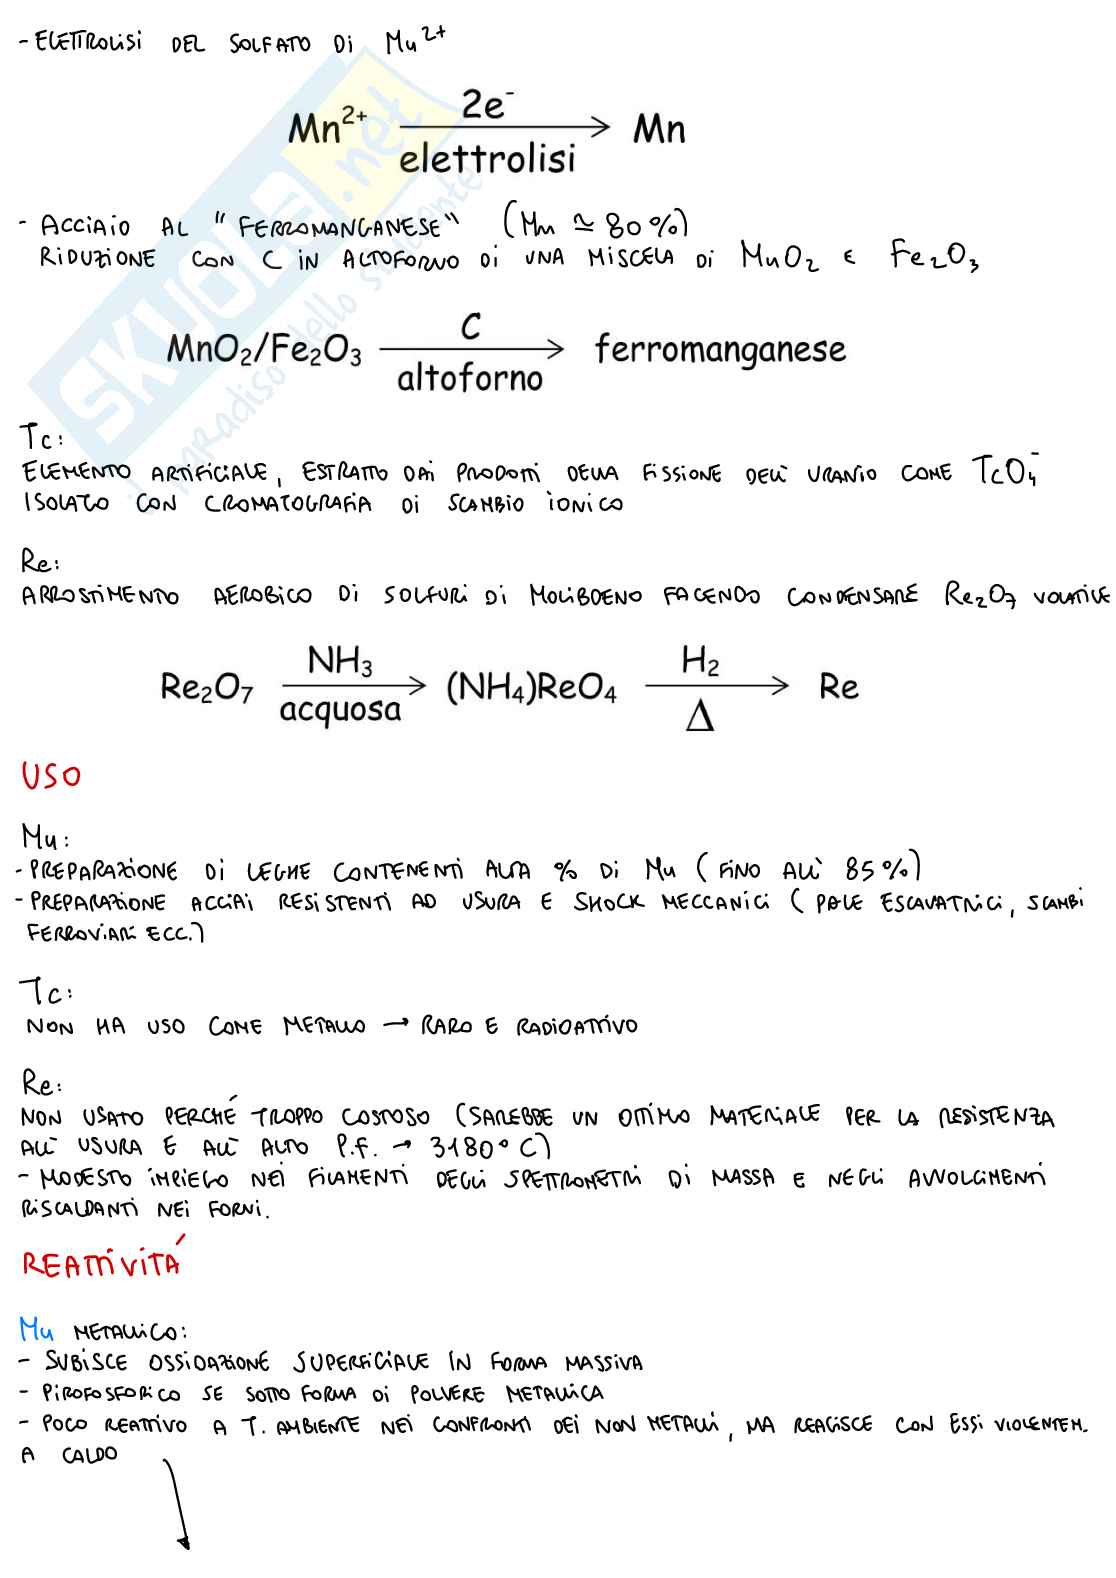 - ELETTROLISI DEL SOLFATO DI Mn²⁺
Mn²⁺ 2e⁻ elettrolisi → Mn
- ACCIAIO AL "FERROMANGANESE" (Mn ≃ 80%)
RIDUZIONE CON C IN ALTOFORNO DI UNA MISCELA DI MnO₂ E Fe₂O₃
MnO₂/Fe₂O₃ C altoforno → ferromanganese
Tc:
ELEMENTO ARTIFICIALE, ESTRATTO DAI PRODOTTI DELLA FISSIONE DELL'URANIO COME TcO₄⁻
ISOLATO CON CROMATOGRAFIA DI SCAMBIO IONICO
Re:
ARROSTIMENTO AEROBICO DI SOLFURI DI MOLIBDENO FACENDO CONDENSARE Re₂O₇ VOLATILE
Re₂O₇ NH₃ acquosa → (NH₄)ReO₄ H₂ Δ → Re
USO
Mn:
- PREPARAZIONE DI LEGHE CONTENENTI ALTA % DI Mn (FINO ALL' 85%)
- PREPARAZIONE ACCIAI RESISTENTI AD USURA E SHOCK MECCANICI (PALE ESCAVATRICI, SCAMBI
FERROVIARI ECC.)
Tc:
NON HA USO COME METALLO → RARO E RADIOATTIVO
Re:
NON USATO PERCHÉ TROPPO COSTOSO (SAREBBE UN OTTIMO MATERIALE PER LA RESISTENZA
ALL' USURA E ALL' ALTO P.f. → 3180° C)
- MODESTO IMPIEGO NEI FILAMENTI DEGLI SPETTROMETRI DI MASSA E NEGLI AVVOLGIMENTI
RISCALDANTI NEI FORNI.
REATTIVITÁ
Mn METALLICO:
- SUBISCE OSSIDAZIONE SUPERFICIALE IN FORMA MASSIVA
- PIROFOSFORICO SE SOTTO FORMA DI POLVERE METALLICA
- POCO REATTIVO A T. AMBIENTE NEI CONFRONTI DEI NON METALLI, MA REAGISCE CON ESSI VIOLENTEM.
A CALDO
SKUOLA.net
il paradiso dello studente